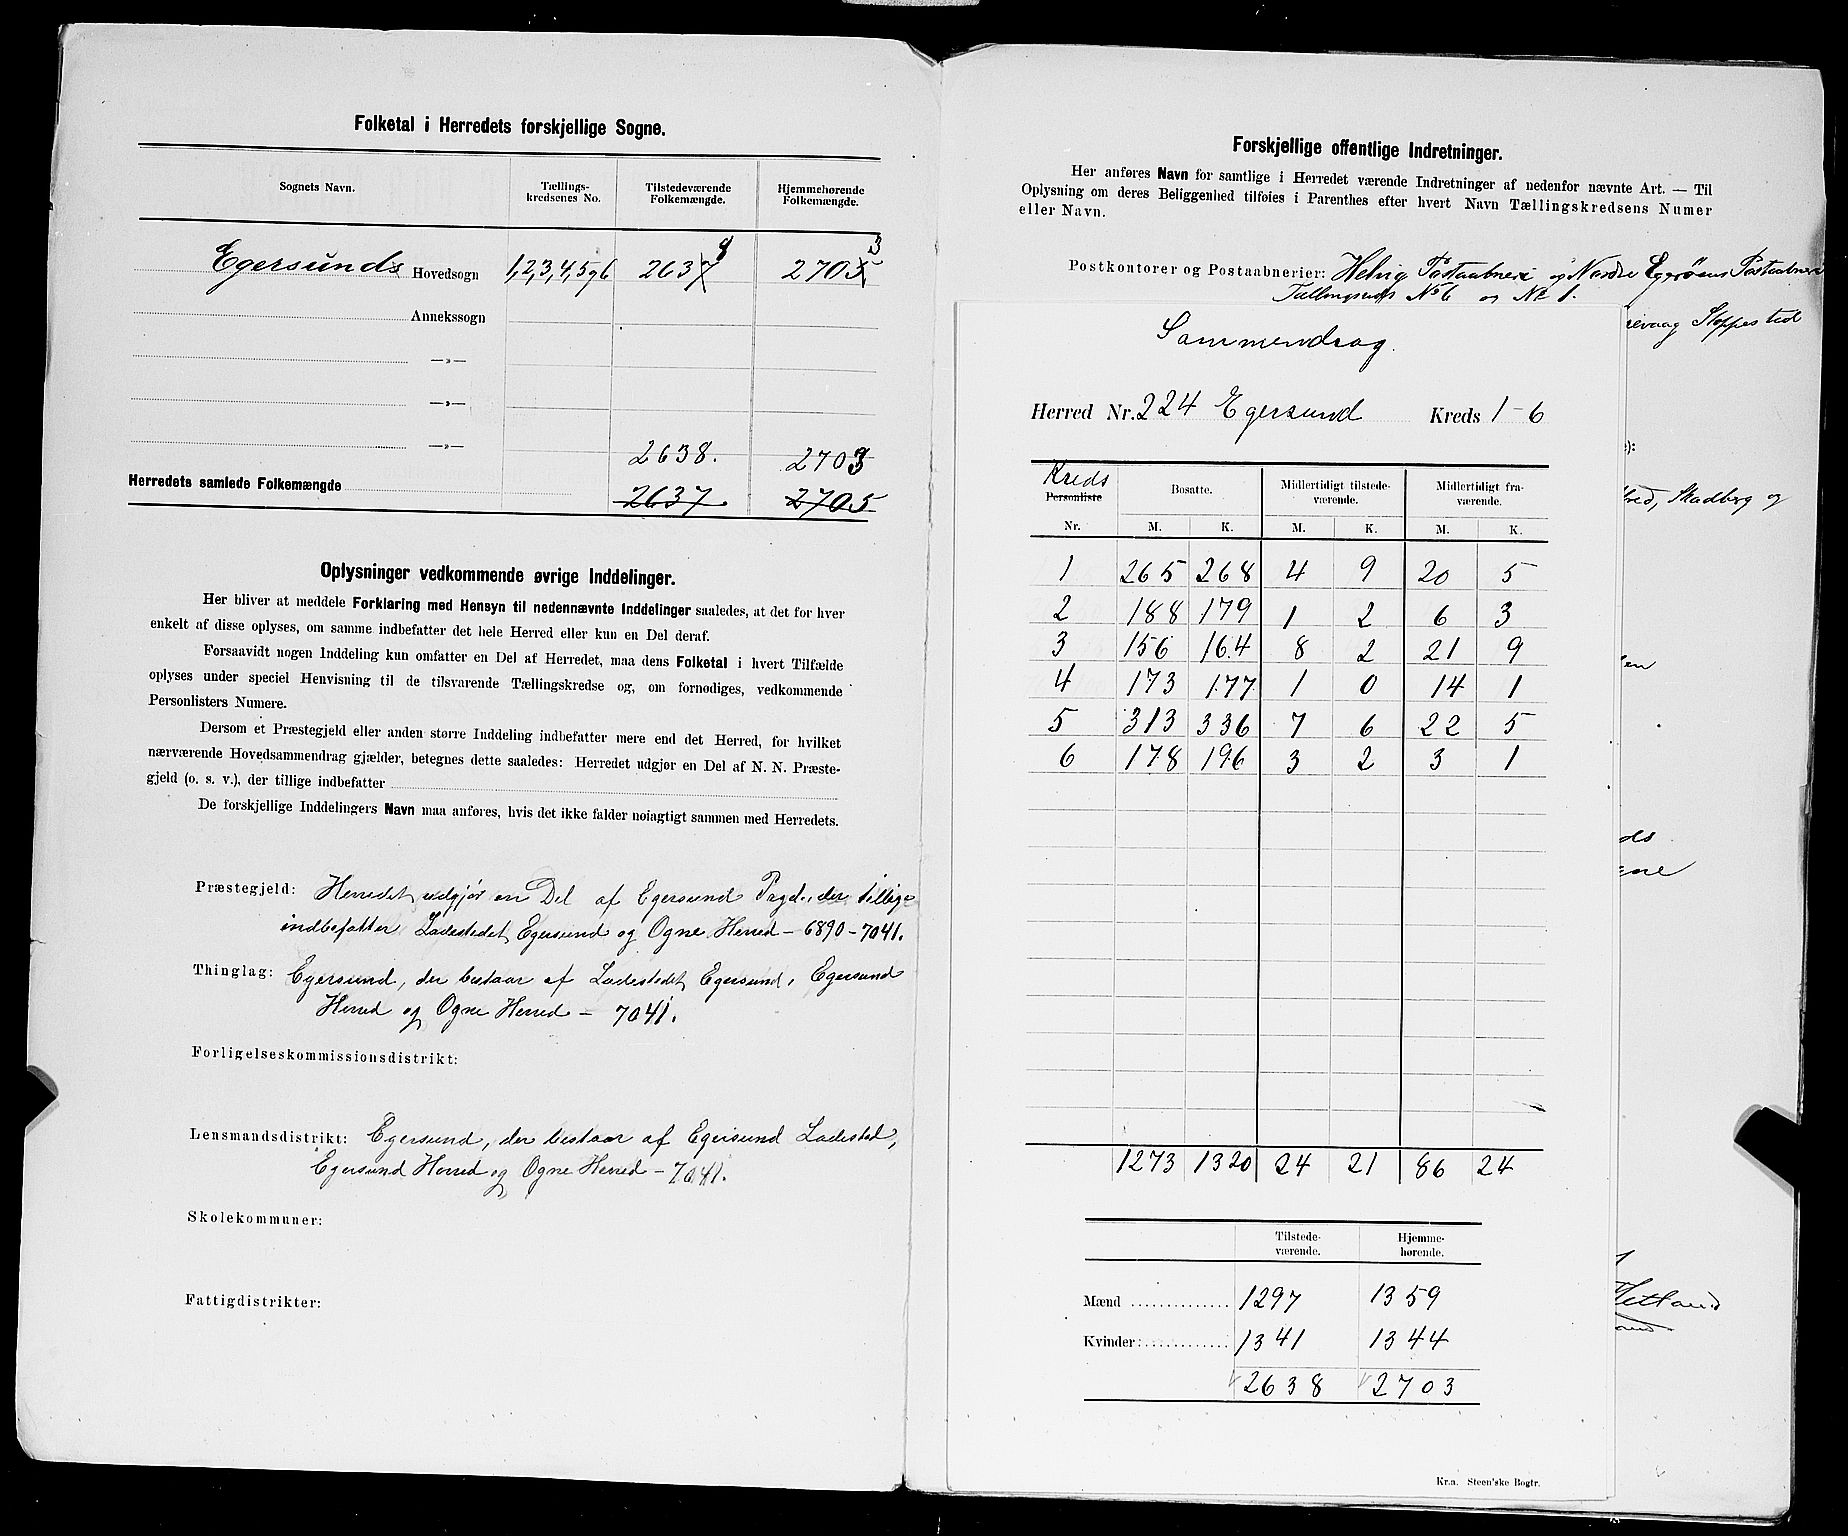 Folketal i Herredets forskjellige Sogne.
Sognets Navn. Tællings- kredsenes No. Tilstedeværende Folkemængde. Hjemmehørende Folkemængde.
Egersunds Hovedsogn 1,2,3,4,5 og 6 2637 8 2705 3
Annekssogn
—»—
—»—
—»—
2638. 2703
Herredets samlede Folkemængde 2637 2705
Oplysninger vedkommende øvrige Inddelinger.
Her bliver at meddele Forklaring med Hensyn til nedennævnte Inddelinger saaledes, at det for hver
enkelt af disse oplyses, om samme indbefatter det hele Herred eller kun en Del deraf.
Forsaavidt nogen Inddeling kun omfatter en Del af Herredet, maa dens Folketal i hvert Tilfælde
oplyses under speciel Henvisning til de tilsvarende Tællingskredse og, om fornødiges, vedkommende
Personlisters Numere.
Dersom et Præstegjeld eller anden større Inddeling indbefatter mere end det Herred, for hvilket
nærværende Hovedsammendrag gjælder, betegnes dette saaledes: Herredet udgjør en Del af N. N. Præste-
gjeld (o. s. v.), der tillige indbefatter
De forskjellige Inddelingers Navn maa anføres, hvis det ikke falder nøiagtigt sammen med Herredets.
Præstegjeld: Herredet udgjør en Del af Egersund Prgd., der tillige
indbefatter Ladestedet Egersund og Ogne Herred – 6890 – 7041.
Thinglag: Egersund, der bestaar af Ladestedet Egersund, Egersund
Herred og Ogne Herred – 7041.
Forligelseskommissionsdistrikt:
Lensmandsdistrikt: Egersund, der bestaar af Egersund Ladested,
Egersund Herred og Ogne Herred – 7041.
Skolekommuner:
Fattigdistrikter:
Forskjellige offentlige Indretninger.
Her anføres Navn for samtlige i Herredet værende Indretninger af nedenfor nævnte Art. — Til
Oplysning om deres Beliggenhed tilføies i Parenthes efter hvert Navn Tællingskredsens Numer
eller Navn.
Postkontorer og Postaabnerier: Helvig Postaabneri og Nordre Egerøens Postaabneri
No 6 og No 1.
revaag Stoppested
red, Skadberg og
Sammendrag.
Herred Nr. 224 Egersund Kreds 1–6
Kreds Personliste Nr. Bosatte. Midlertidigt tilstede- værende. Midlertidigt fra- værende.
M. K. M. K. M. K.
1 265 268 4 9 20 5
2 188 179 1 2 6 3
3 156 164 8 2 21 9
4 173 177 1 0 14 1
5 313 336 7 6 22 5
6 178 196 3 2 3 1
1273 1320 24 21 86 24
Tilstede- værende. Hjemme- hørende.
Mænd 1297 1359
Kvinder: 1341 1344
2638 2703
Kr.a. Steen'ske Bogtr.